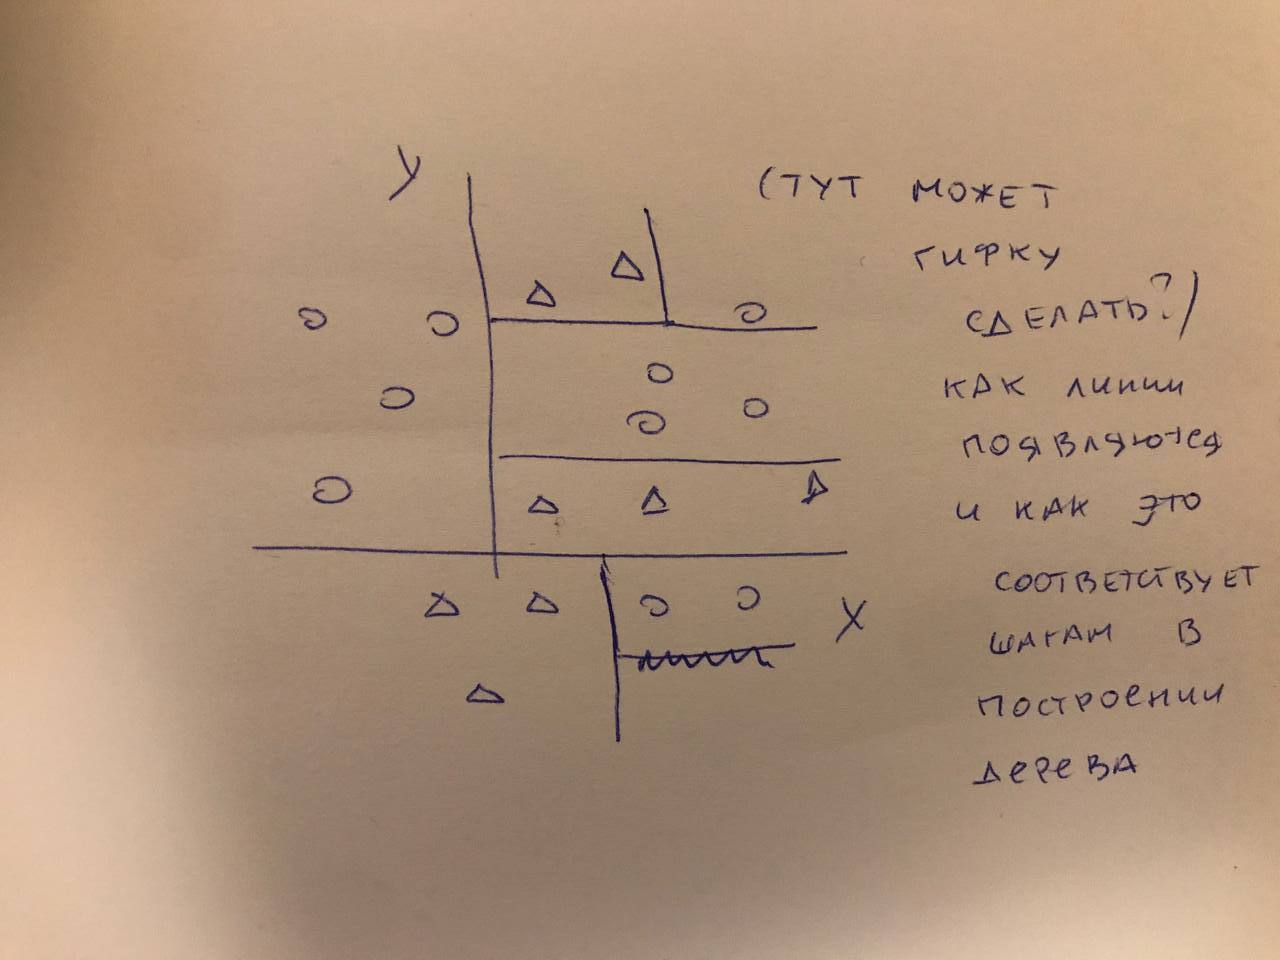 У
(ТУТ МОЖЕТ
ГИФКУ
СДЕЛАТЬ?)
КАК ЛИНИИ
ПОЯВЛЯЮТСЯ
И КАК ЭТО
СООТВЕТСТВУЕТ
ШАГАМ В
ПОСТРОЕНИИ
ДЕРЕВА
Х